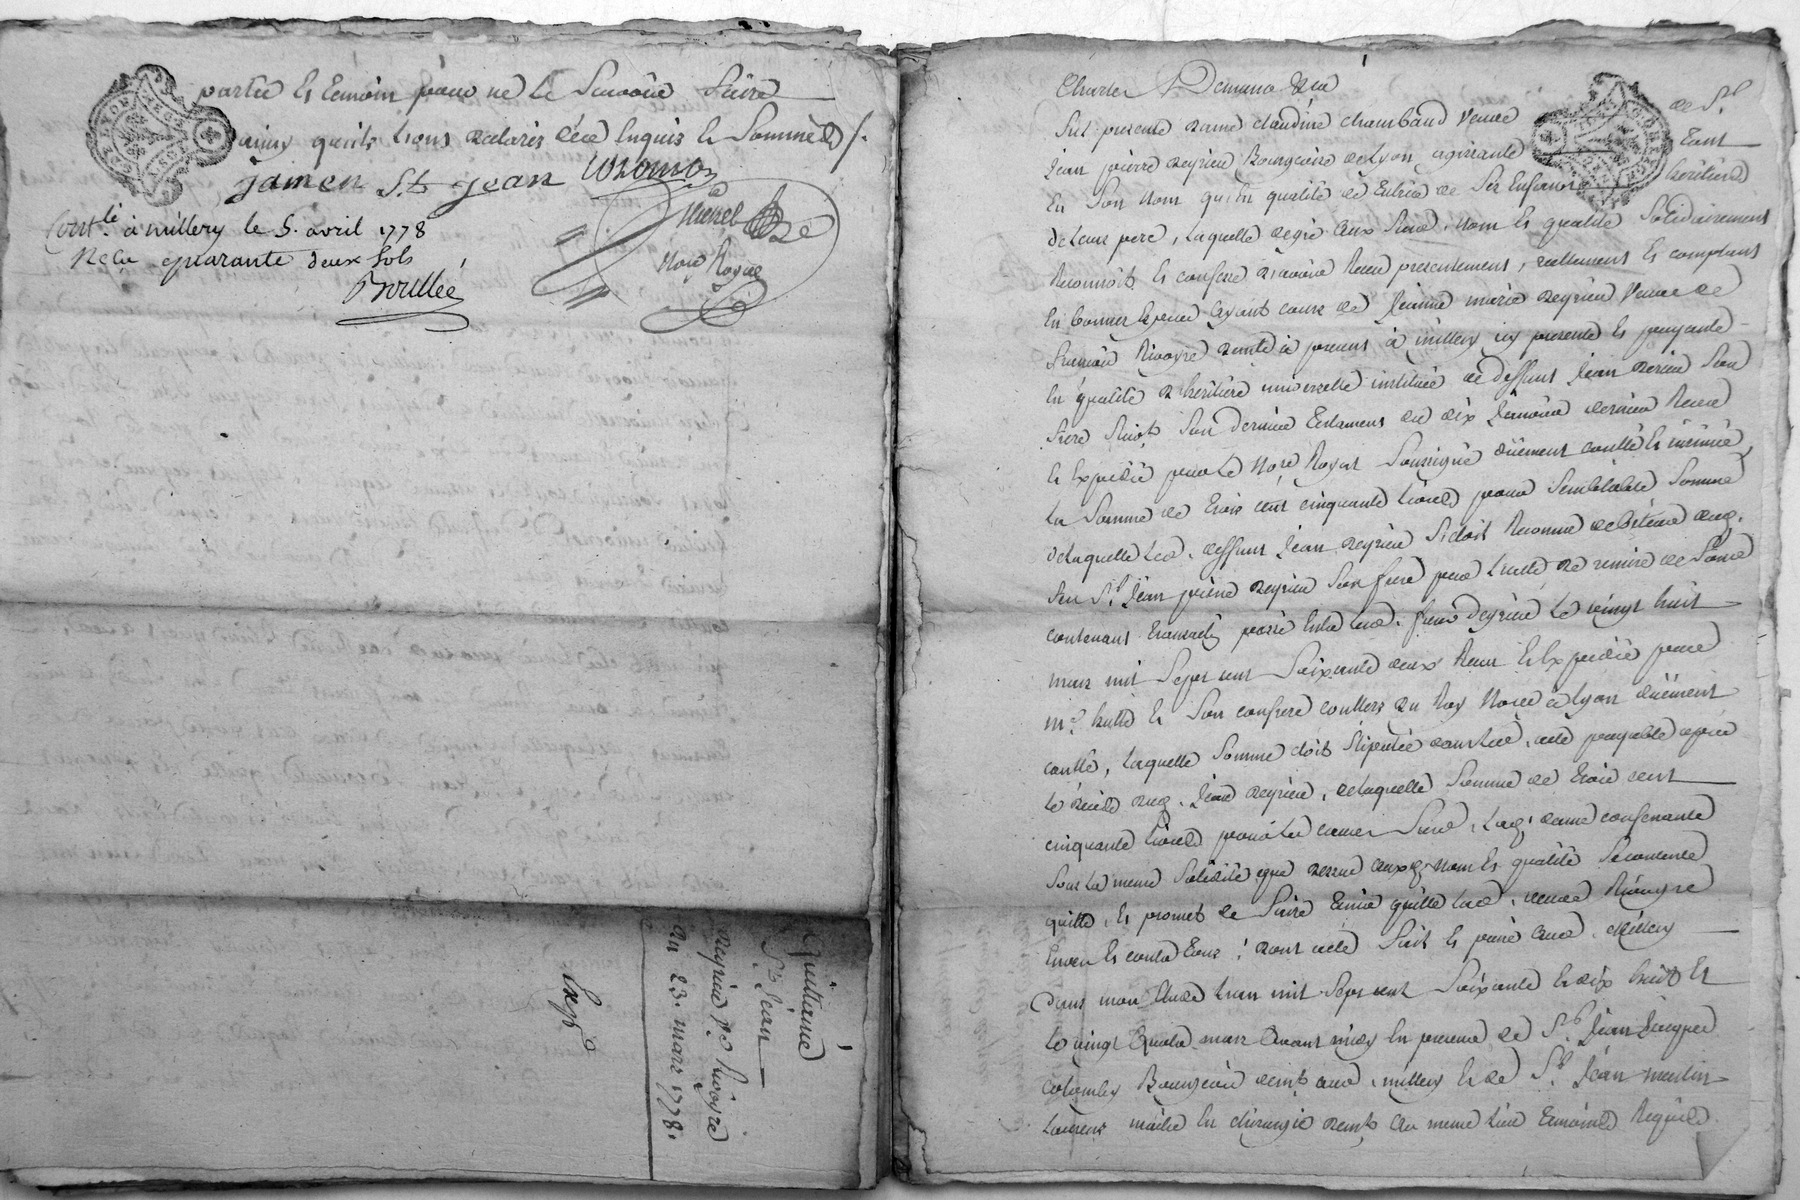 partie et témoin pour ne le Savoir faire
ainsy quils l'ont declaré de ce Enquis et Sommés /.
jamen St jean
Michel
Nore Royal
Contlé à millery le 5. avril 1778
Reçu quarante deux sols
Boullée
Quittance
St Jean
deyrieu Ve Rivoyre
du 23. mars 1778.
Expé
fut presente dame claudine chambaud Veuve de Sr
Jean pierre deyrieu Bourgeois de Lyon agissante tant
En Son nom qu'en qualité de tutrice de Ses Enfans héritiers
de leur pere, laquelle de gré aux Susd. nom et qualité Solidairement
Reconnoit et confesse d'avoir Receu presentement, reellement et comptant
En bonnes Especes ayant cours de Jeanne marie deyrieu Veuve de
Rivoyre demte à present à millery icy presente et payante
En qualité d'héritière universelle instituée de deffunt Jean deyrieu Son
frere Suivt Son dernier testament du dix Janvier dernier Receu
et Expedié par le Nore Royal Soussigné düement contlé et insinué
La Somme de trois cent cinquante Livres pour Semblable Somme
de laquelle led. deffunt Jean deyrieu S'étoit Reconnu debiteur aud.
feu Sr Jean pierre deyrieu Son frere par
contenant transactn passé Entre lesd. freres deyrieu le vingt huit
mars mil Sept cent Soixante deux Receu et Expedié par
me et Son confrere conllers du Roy Nores à Lyon düement
contlé, laquelle Somme étoit Stipulée dans led. acte payable après
le décès dud. Jean deyrieu, de laquelle Somme de trois cent
cinquante Livres pour les causes Susd. lad. dame confessante
Sous la meme Solidité que dessus auxd. nom et qualité Se contente
quitte, et promet de faire tenir quitte lad. veuve Rivoyre
Envers et contre tous! dont acte fait et passé aud. Millery
dans mon Etude l'an mil Sept cent Soixante et dix huit et
le vingt mars avant midy En presence de Sr Jean Jacques
colomby Bourgeois demt aud. millery et de Sr Jean martin
Laurens maître En chirurgie demt au meme lieu témoins Requis